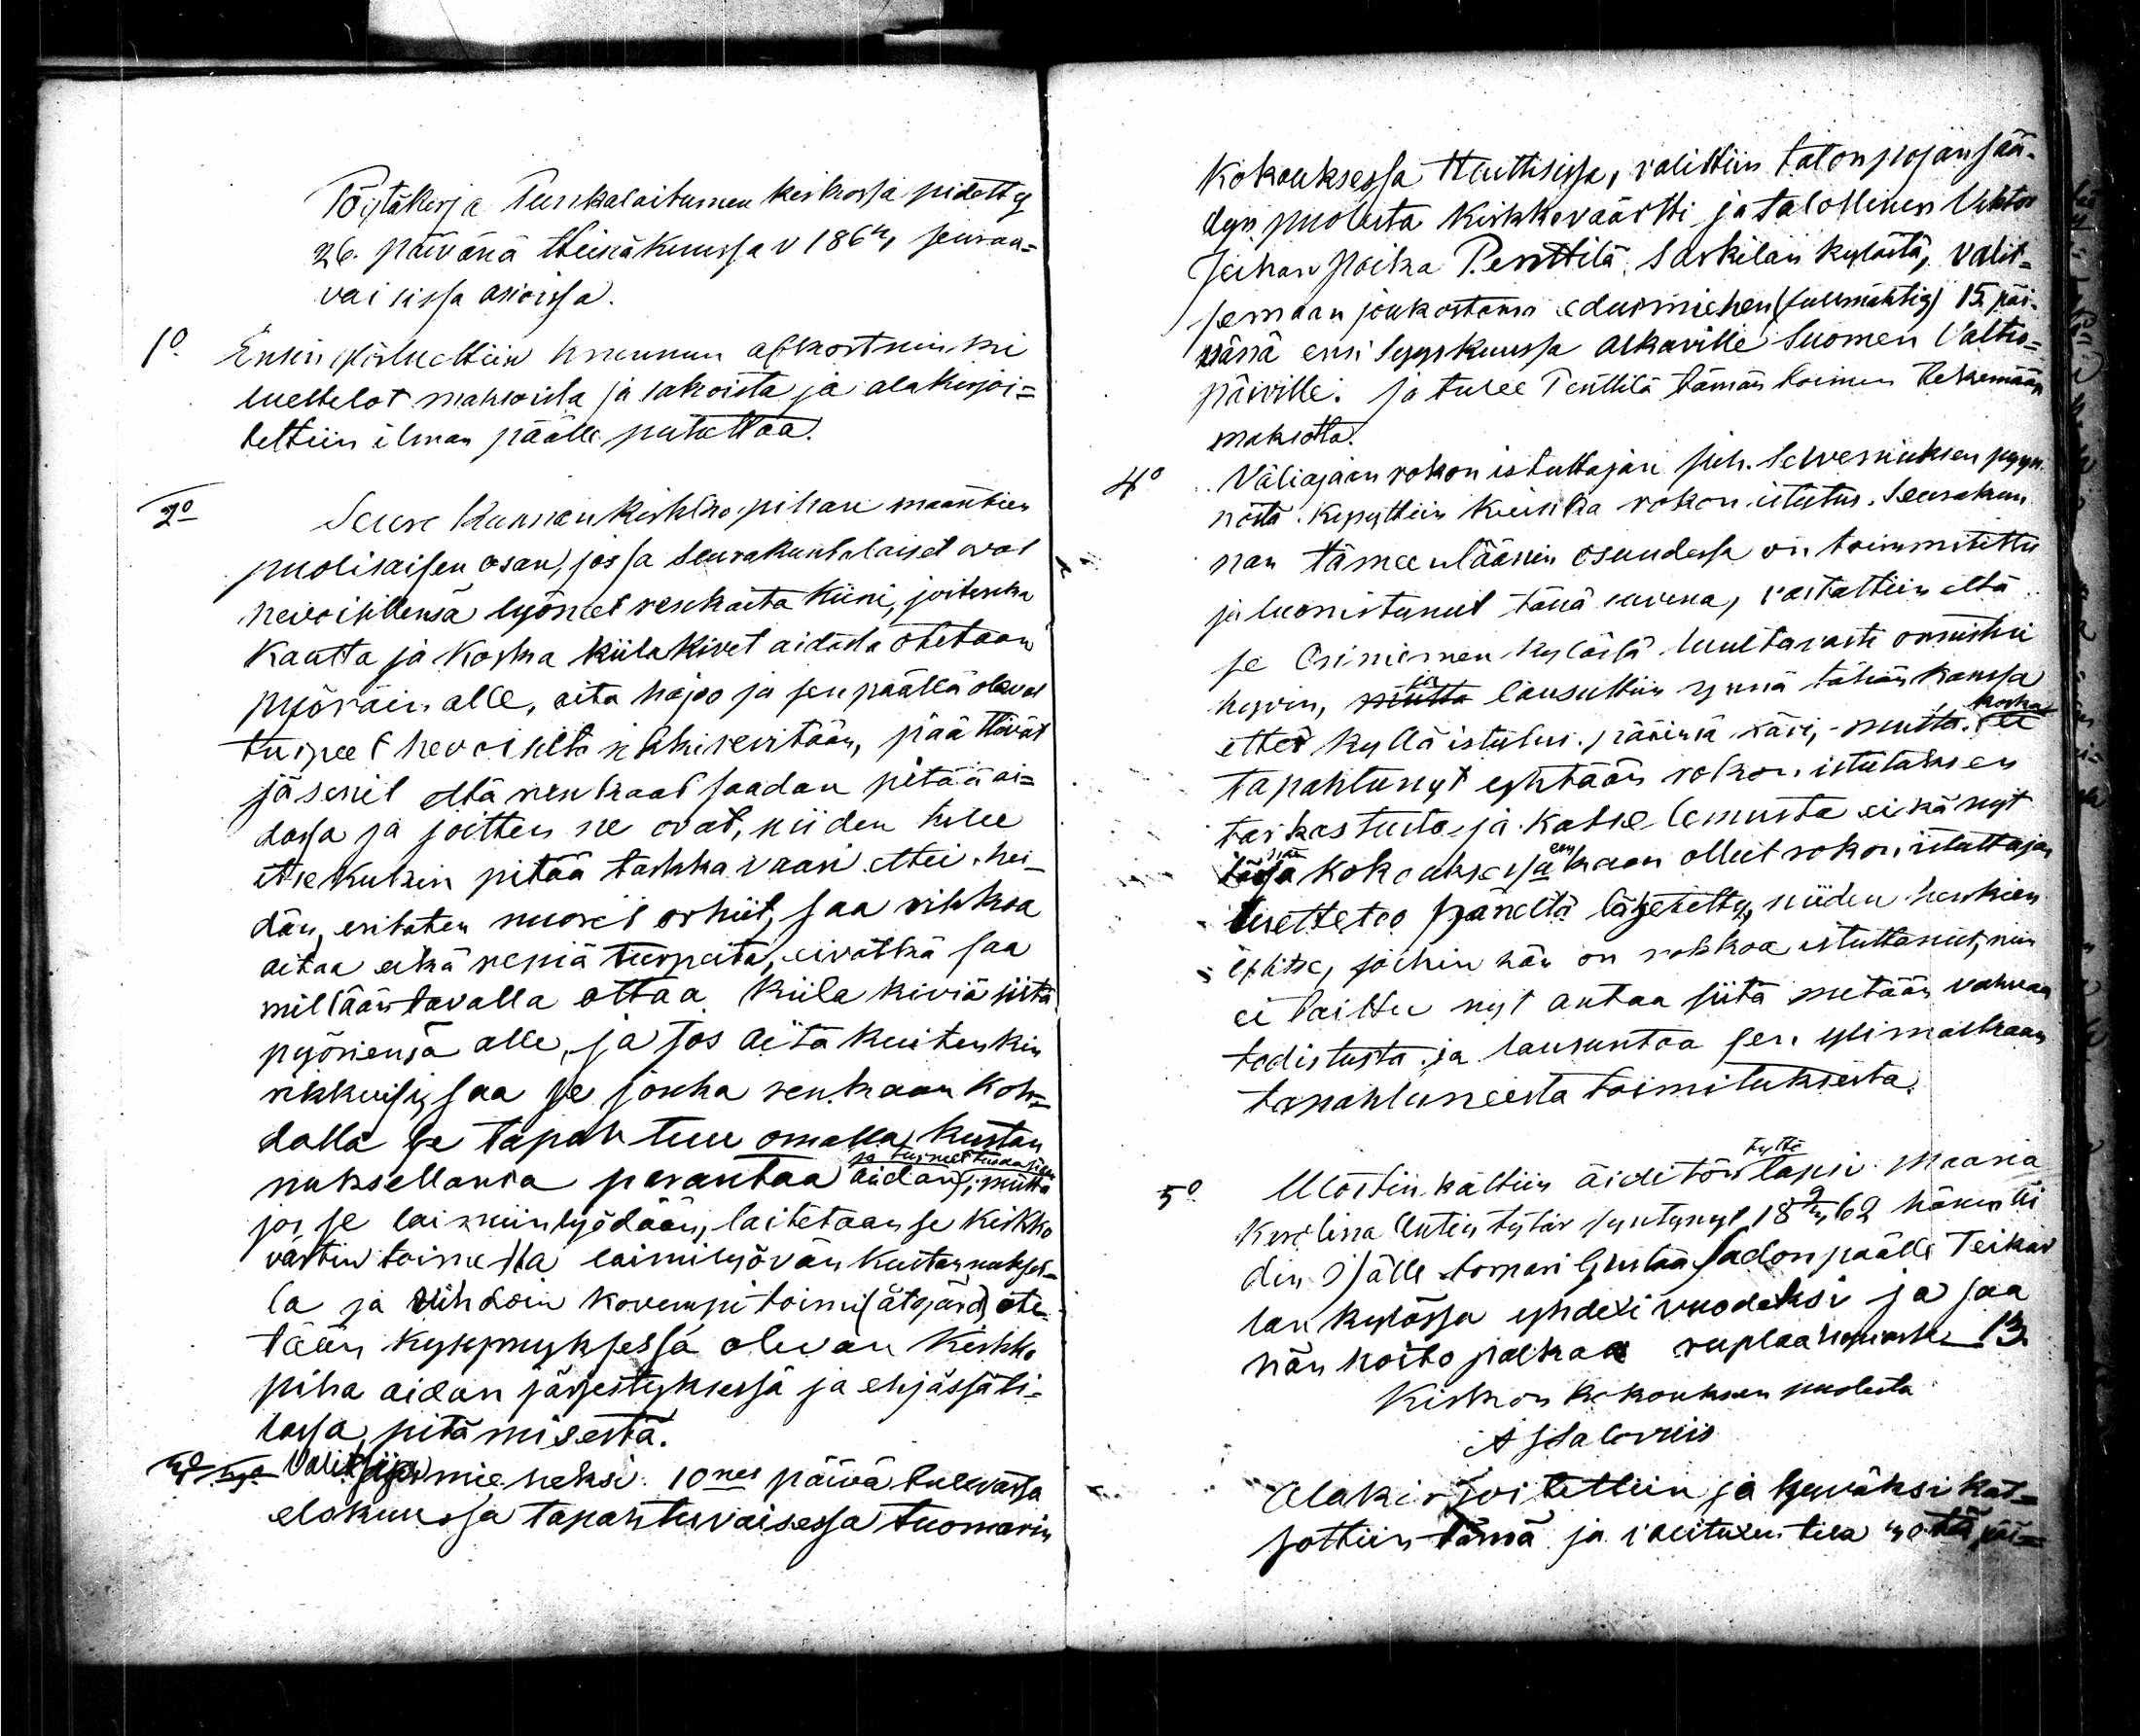 Pöytäkirja Punkalaitumen kirkossa pidetty
26. päivänä Heinäkuussa v 186 seuraa=
vaisissa asioissa.
1o. Ensin luettiin kruunun
luettelot maksoista ja sakoista ja alakirjoi=
tettiin ilman päälle puhettaa.
2o Seurakunnan kirkko pihan maantien
puolisaisen osan, jossa Seurakuntalaiset ovat
hevoisillensa lyöneet renkaita kiini, joitenka
kautta ja koska kiilakivet aidasta otetaan
pyöräin alle, aita hajoo ja sen päällä olevat
turpeet hevoisilta rikki revitään, päättivät
jäsenet että renkaat saadan pitää ai=
dassa ja joitten ne ovat, niiden tulee
itsekukin pitää tarkka vaari ettei hei=
dän, eritoten nuoret orhiit, saa rikkoa
aitaa eikä repiä turpeita, eivätkä saa
millään tavalla ottaa kiila kiviä siitä
pyöriensä alle, ja jos aita kuitenkin
rikkuisi, saa se jonka renkaan koh=
dalla se tapahtuu omalla kustan
nuksellansa parantaa aidan ja turpeet; mutta
jos se laiminlyödään, laitetaan se kirkko
värtin toimesta laimilyövän kustannuksel=
la ja vihdoin kovempi toimi (åtgärd) ote=
tään kysymyksessä olevan kirkko
piha aidan järjestyksessä ja ehjässä ti=
lassa pitämisestä.
3o miesheksi 10nes päivä tulevassa
elokuussa tapahtuvaisessa tuomarin
kokouksessa Huttisissa, valittiin talonpojan sää=
dyn puolesta kirkkoväärtti ja talollinen Viktor
Juhan poika Penttilä Sarkilan kylästä, valit=
semaan joukostansa edusmiehen (fullmäktig) 15 päi=
vänä ensi Syyskuussa alkaville Suomen Valtio=
päiville. Ja tulee Penttilä tämän toimen tekemään
maksotta.
4o Väliajan rokon istuttajan Juh. Seveniuksen pyyn
nöstä. kysyttiin kuinka rokon istutus Seurakun
nan Hämeenläänin osuudessa on toimitettu
ja luonistunut tänä suvena, vastattiin että
se Oriniemen kylässä luultavasti onnistui
hyvin, mutta ja lausuttiin synnä tähän kanssa
ettei kyllä istutus mutta koska ei
tapahtunyt yhtään rokon istutuksen
tarkastusta ja katselemusta eikä nyt
tässä kokouksessakaan ollut rokon istuttajan
luetteloo häneltä lähetetty, niiden henkien
ylitse, joihin hän on rokkoa istuttanut, niin
ei taittu nyt antaa siitä mitään vahvaa
todistusta ja lausuntoa sen ylimalkaan
tapahtuneesta toimituksesta.
5o Uloshuukattiin äiditön tyttö lapsi Maaria
Karolina Antin tytär syntynyt 18 62 hänen
din
lan kylässä yhdeksi vuodeksi ja saa
hän hoito palkaa ruplaa hopiassa 13
Kirkon kokouksen puolesta
A J Salovius
Alakirjoitettiin ja hyväksi kat=
sottiin tämä ja